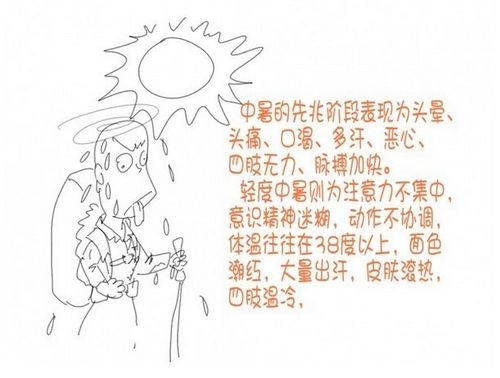 中暑的先兆阶段表现为头晕、
头痛、口渴、多汗、恶心、
四肢无力、脉搏加快。
轻度中暑则为注意力不集中,
意识精神迷糊，动作不协调,
体温往往在38度以上，面色
潮红，大量出汗，皮肤滚热,
四肢温冷,